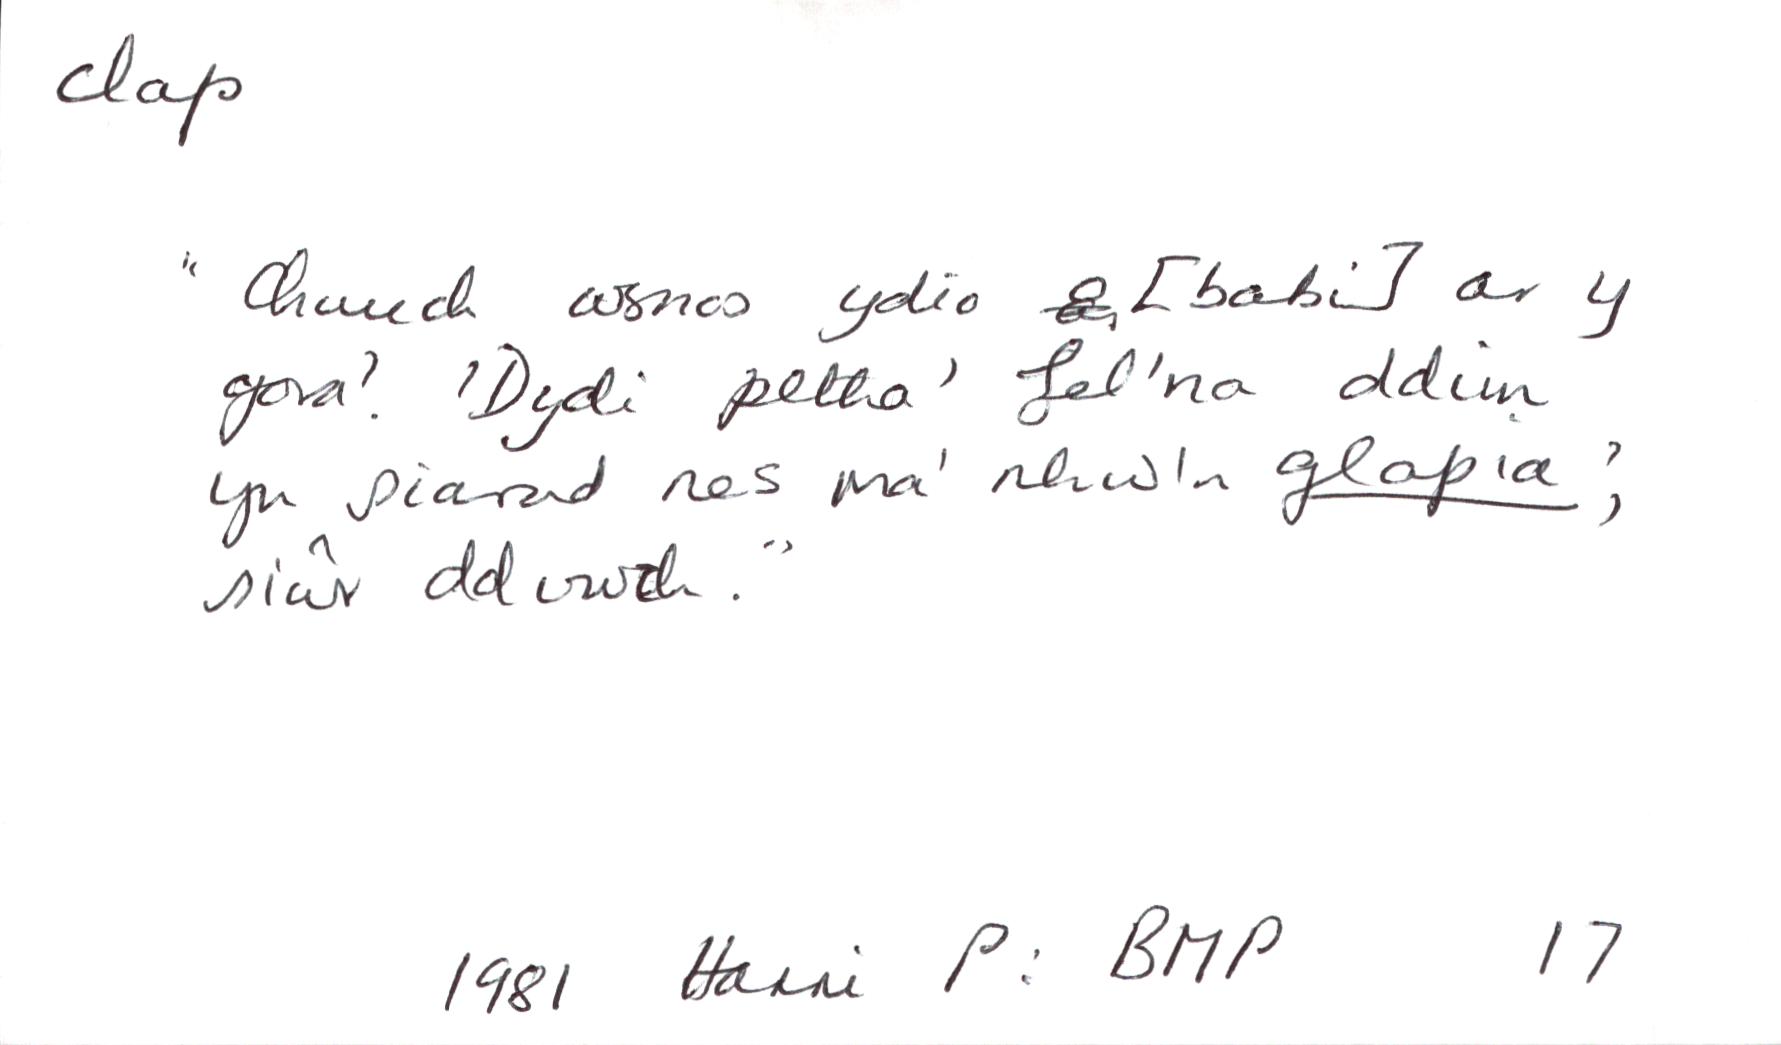 clap
"Chwech wsnos ydio [babi] ar y
gora'. 'Dydi petha' fel'na ddim
yn siarad nes ma' nhw'n glapia',
siŵr dduwch."
1981 Harri P: BMP 17